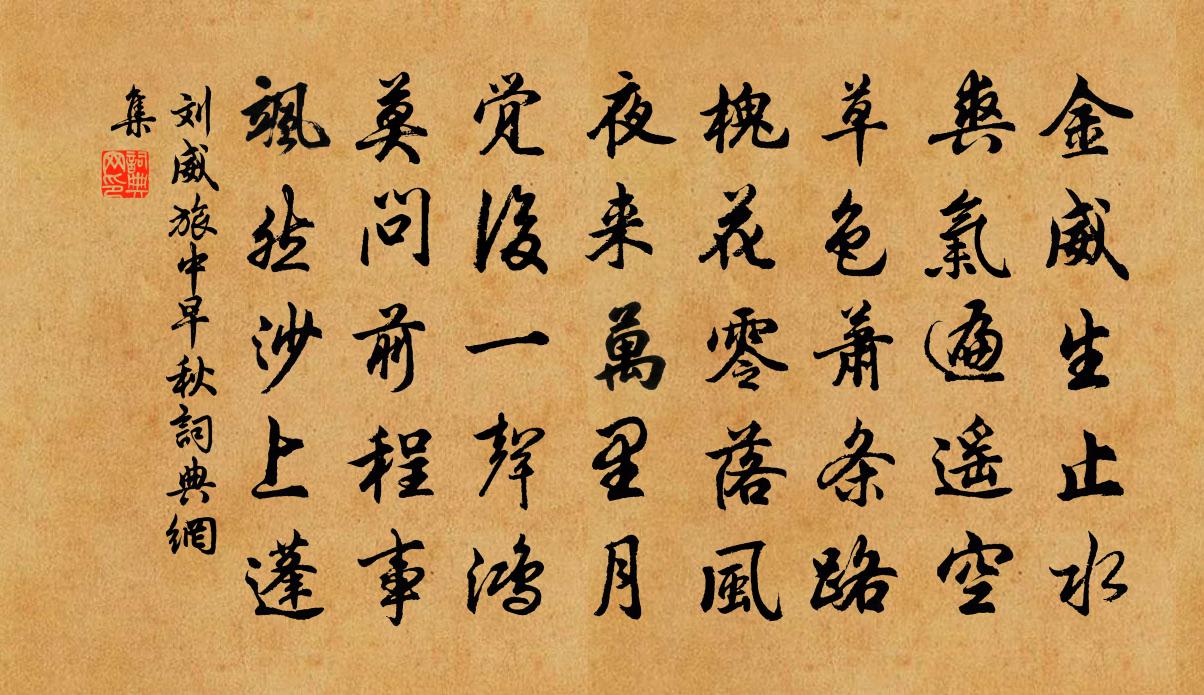 金威生止水
爽氣遍遥空
草色蕭条路
槐花零落風
夜来萬里月
覚後一聲鴻
莫問前程事
颯然沙上蓬
刘威旅中早秋詞典網
集
詞典網印